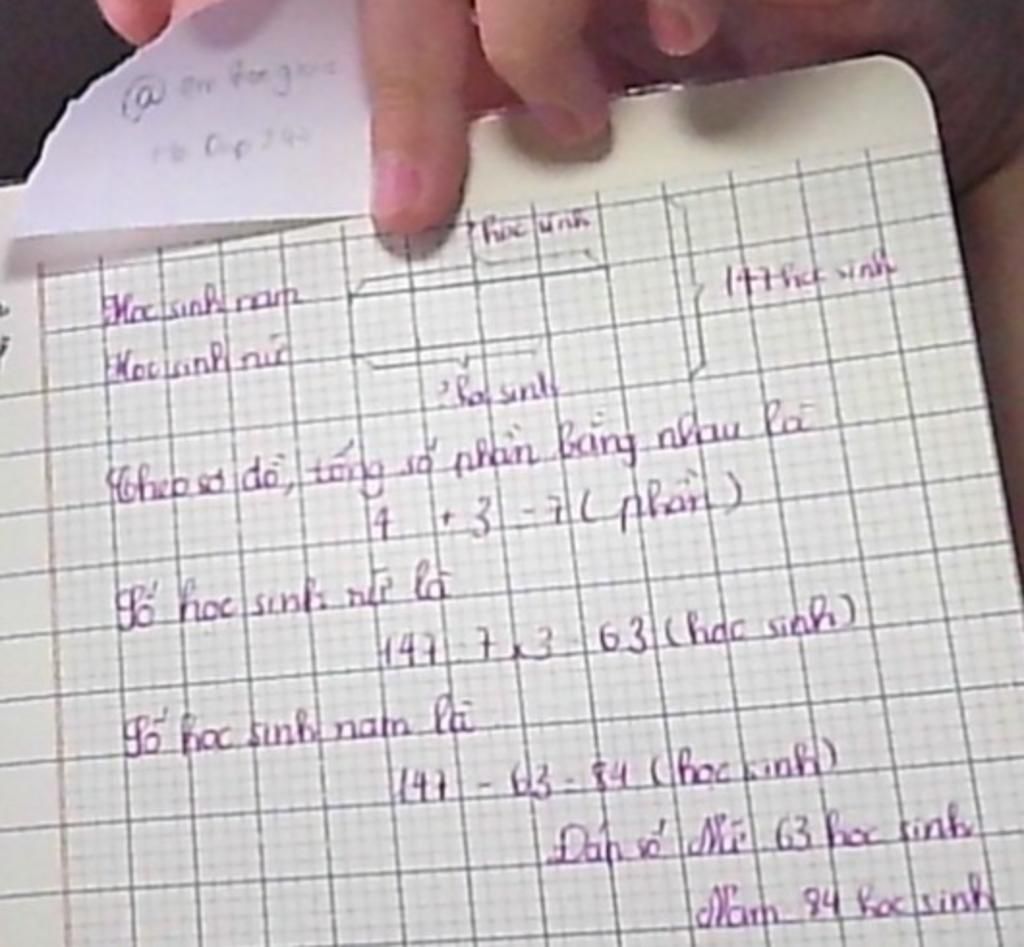 ? học sinh
Học sinh nam
147 học sinh
Học sinh nữ
? học sinh
Theo sơ đồ, tổng số phần bằng nhau là
4 + 3 = 7 (phần)
Số học sinh nữ là
147 : 7 x 3 = 63 (học sinh)
Số học sinh nam là
147 - 63 = 84 (học sinh)
Đáp số Nữ 63 học sinh
Nam 84 học sinh